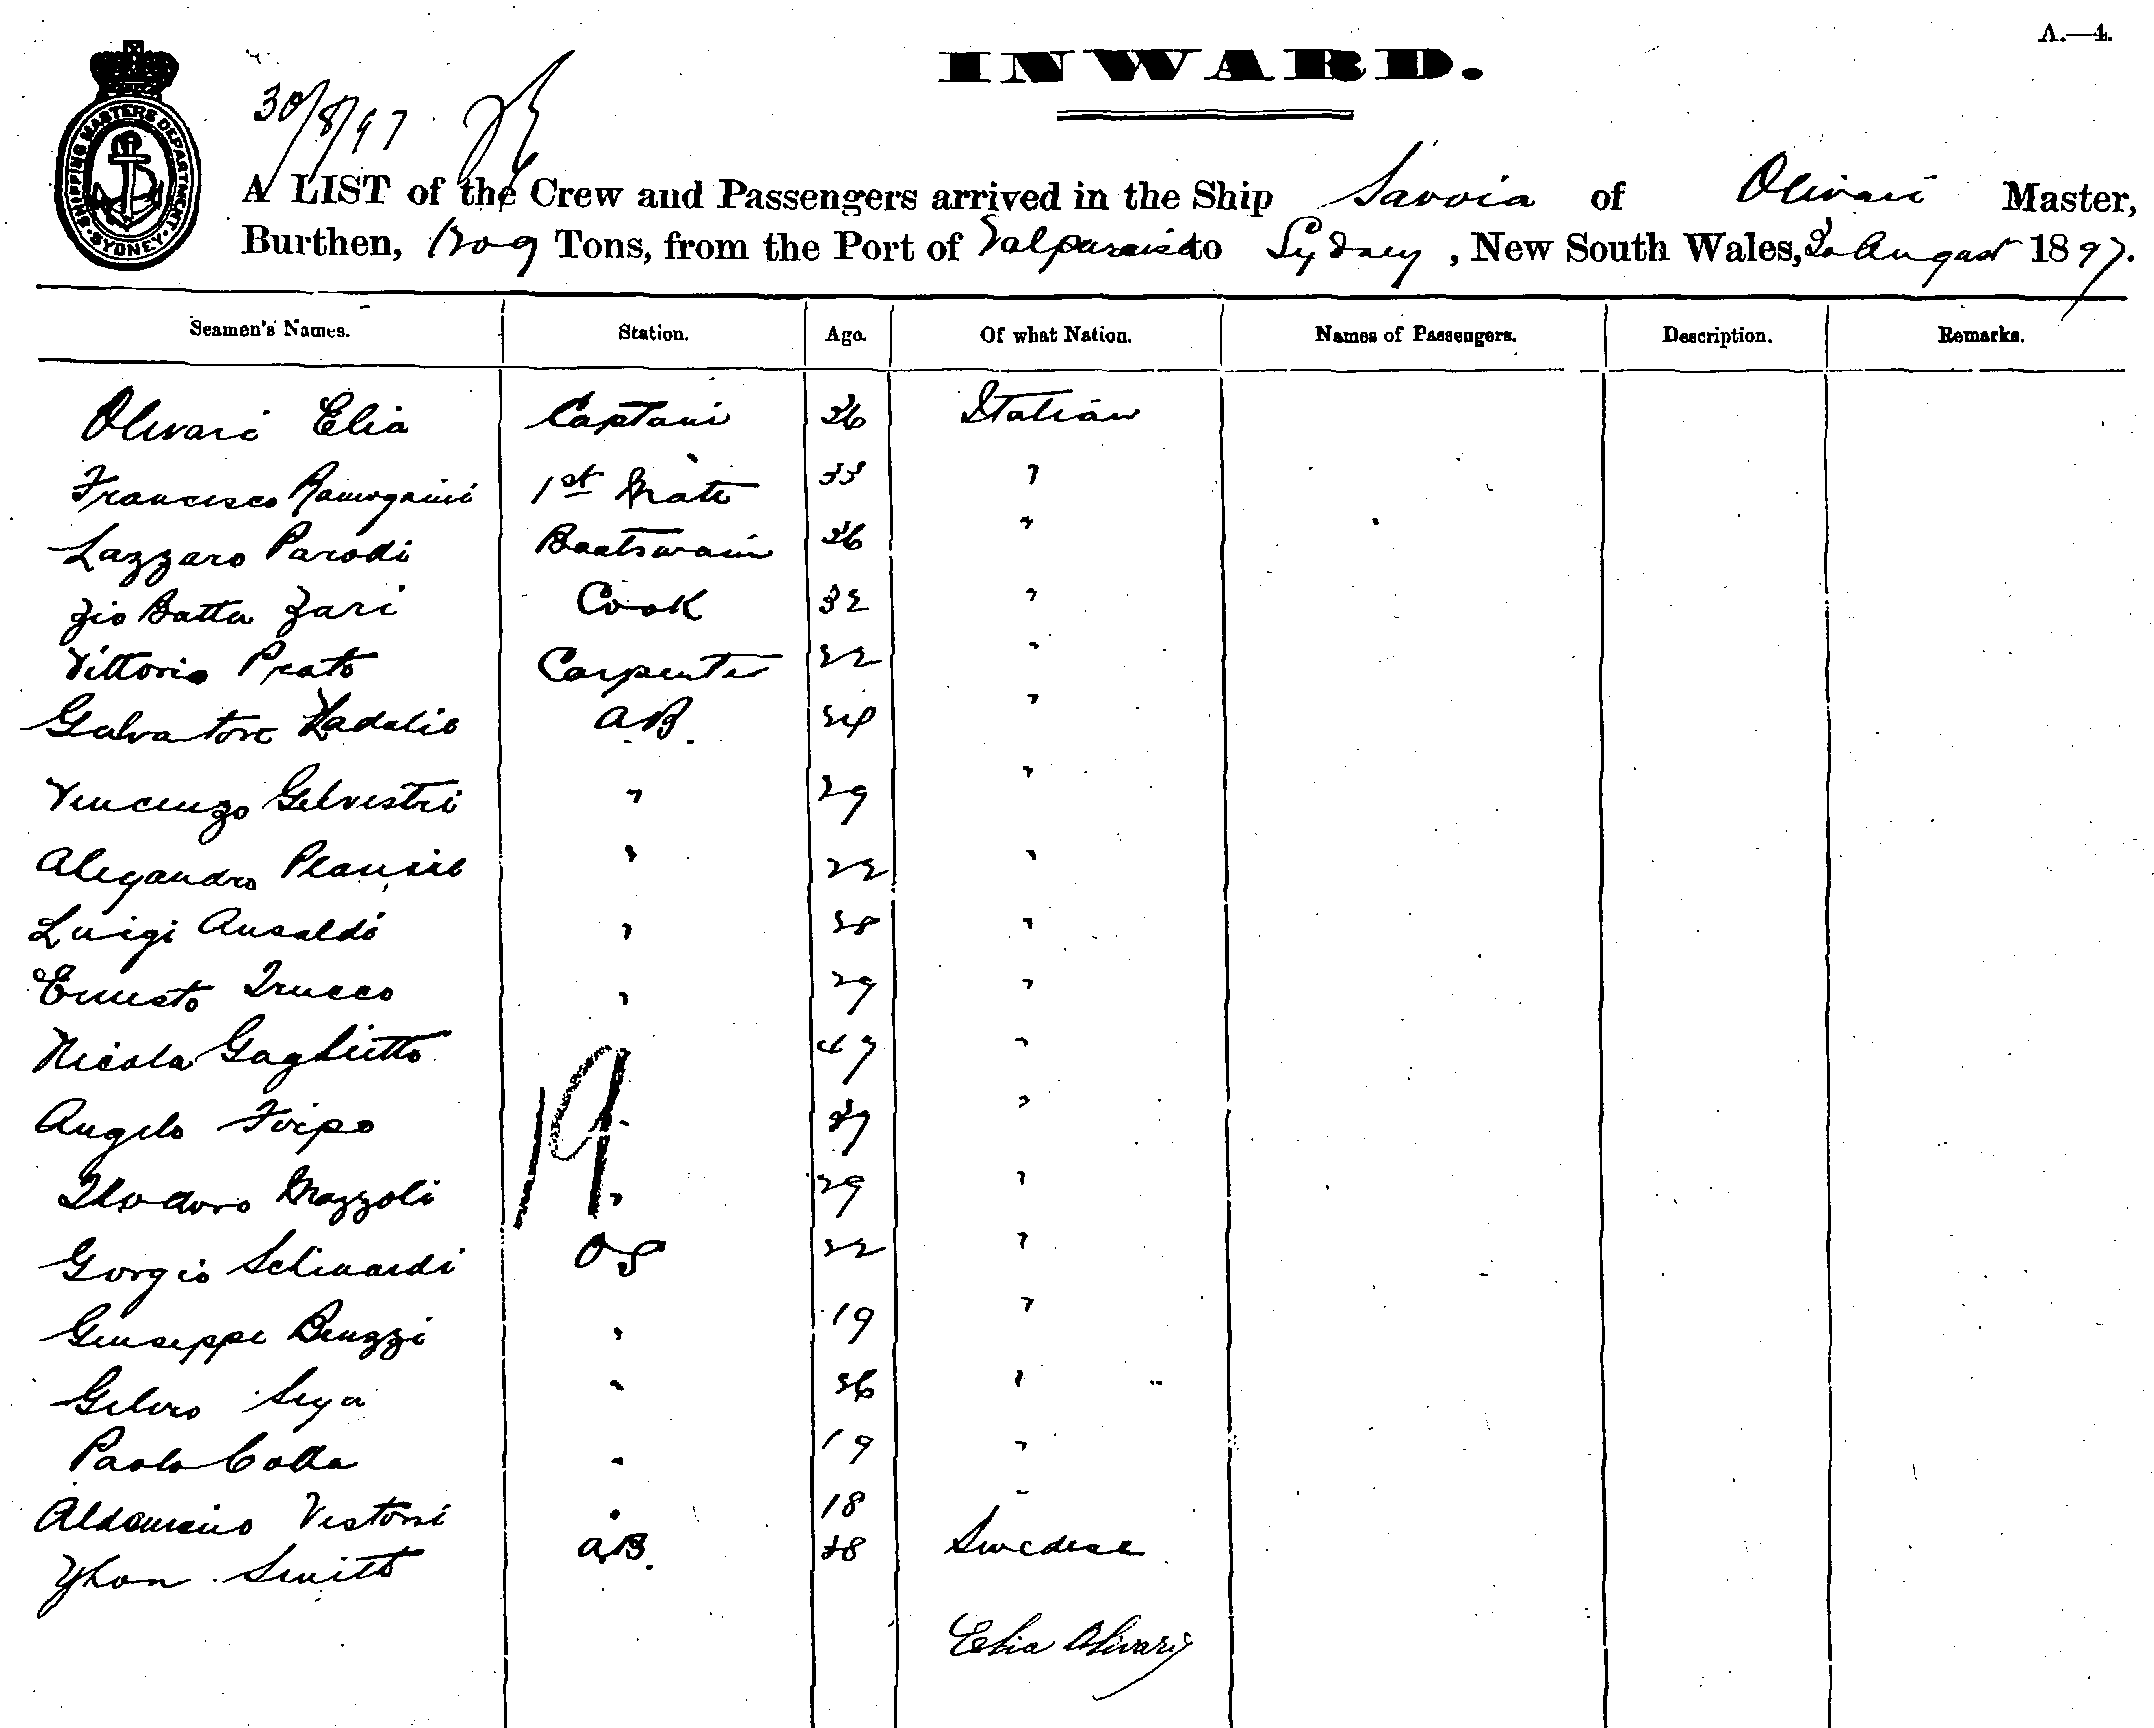 A.—4.
INWARD.
30/8/97
SHIPPING MASTERS DEPARTMENT SYDNEY
A LIST of the Crew and Passengers arrived in the Ship Savoia of Olivari Master,
Burthen, 1209 Tons, from the Port of Valparaiso to Sydney, New South Wales, August 1897.
Seamen's Names. Station. Age. Of what Nation. Names of Passengers. Description. Remarks.
Olivari Elia Captain 36 Italian
Francesco 1st Mate 33 "
Lazzaro Parodi Boatswain 36 "
Gio Batta Zari Cook 32 "
Vittorio Prato Carpenter 22 "
Galvatore Nadalie A.B. 24 "
Vincenzo Gelvestri " 29 "
Alegandro " 22 "
Luigi Ansaldo " 28 "
Ernesto Trucco " 29 "
Nicola Gaglietto " 47 "
19
Angelo Firpo " 27 "
Teodoro Mazzoli " 29 "
Gorgio Schinardi OS 22 "
Giuseppe Benzzi " 19 "
Gelvio " 26 "
Paolo Colla " 19 "
Vestorri " 18 "
Yhon Smitt A.B. 28 Swedese
Elia Olivari